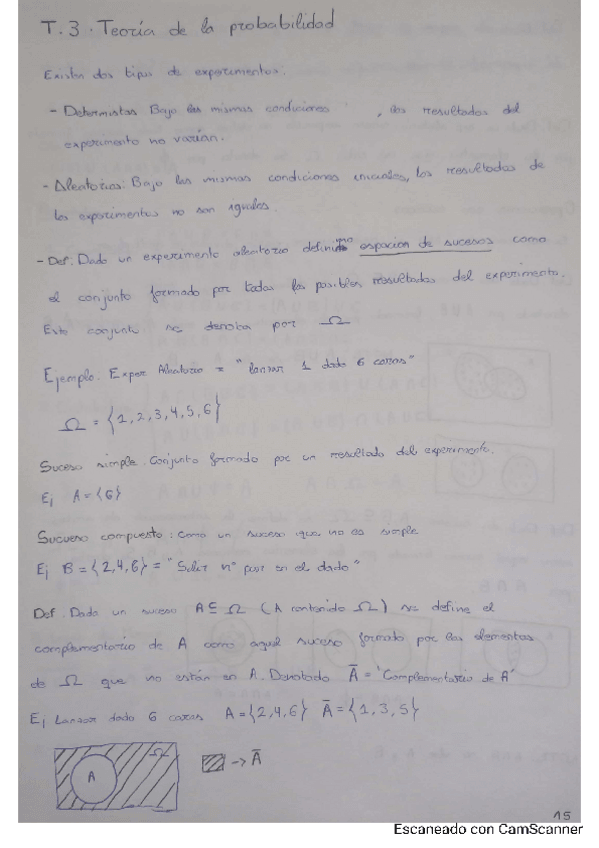 T.3. Teoría de la probabilidad
Existen dos tipos de experimentos.
- Deterministas. Bajo las mismas condiciones , los resultados del
experimento no varían.
- Aleatorios: Bajo las mismas condiciones iniciales, los resultados de
los experimentos no son iguales.
- Def. Dado un experimento aleatorio definimos espacion de sucesos como
el conjunto formado por todos los posibles resultados del experimento.
Este conjunto se denota por Ω
Ejemplo. Exper Aleatorio = "lanzar 1 dado 6 caras"
Ω = {1,2,3,4,5,6}
Suceso simple. Conjunto formado por un resultado del experimento.
Ej A = {6}
Sucueso compuesto: Como un suceso que no es simple
Ej B = {2,4,6} = "Salir nº par en el dado"
Def. Dado un suceso A ⊆ Ω (A contenido Ω) se define el
complementario de A como aquel suceso formado por los elementos
de Ω que no están en A. Denotado Ā = "Complementario de A"
Ej Lanzar dado 6 caras A = {2,4,6} Ā = {1,3,5}
Ω
A
-> Ā
15
Escaneado con CamScanner